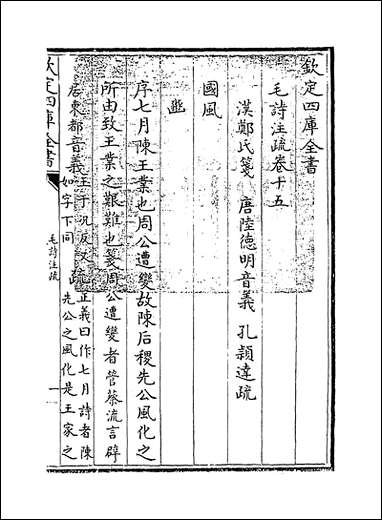 欽定四庫全書
毛詩注疏卷十五
漢鄭氏箋 唐陸德明音義 孔穎達疏
國風
豳
序七月陳王業也周公遭變故陳后稷先公風化之
所由致王業之艱難也箋周公遭變者管蔡流言辟
居東都音義王于況反又如字下同疏正義曰作七月詩者陳先公之風化是王家之
欽定四庫全書
毛詩注疏
一